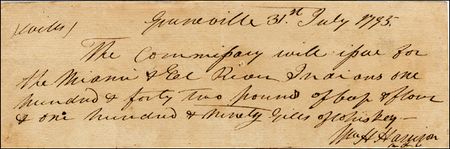 Greneville 31.st July 1795.
The Commissary will issue for
the Miami & Eel River Indians one
hundred & forty two pound of beef & flour
& one hundred & ninety Gills of Whiskey—
Wm H. Harrison